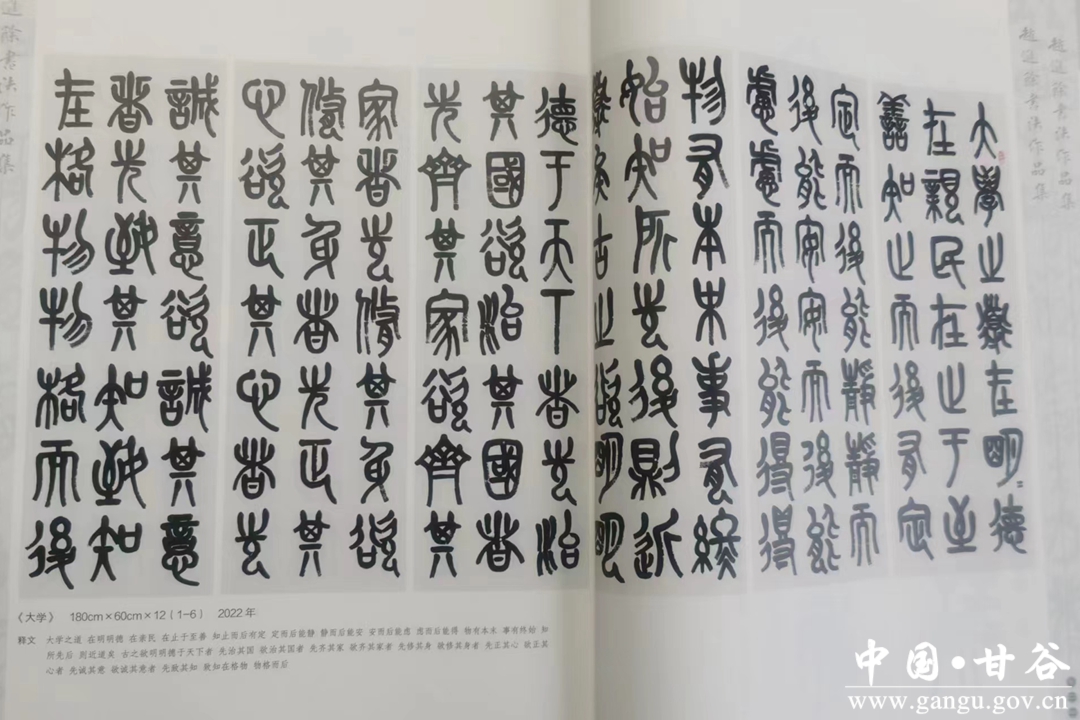 書法作品集
書法作品集
大學之道在明=德
在親民在止于至
善知止而後有定
定而後能靜靜而
後能安安而後能
慮慮而後能得得
物有本末事有終
始知所先後則近
道矣古之欲明明
德于天下者先治
其國欲治其國者
先齊其家欲齊其
家者先修其身欲
修其身者先正其
心欲正其心者先
誠其意欲誠其意
者先致其知致知
在格物物格而後
書法作品集
《大学》 180cm×60cm×12（1-6） 2022年
释文 大学之道 在明明德 在亲民 在止于至善 知止而后有定 定而后能静 静而后能安 安而后能虑 虑而后能得 物有本末 事有终始 知
所先后 则近道矣 古之欲明明德于天下者 先治其国 欲治其国者 先齐其家 欲齐其家者 先修其身 欲修其身者 先正其心 欲正其
心者 先诚其意 欲诚其意者 先致其知 致知在格物 物格而后
中国·甘谷
www.gangu.gov.cn